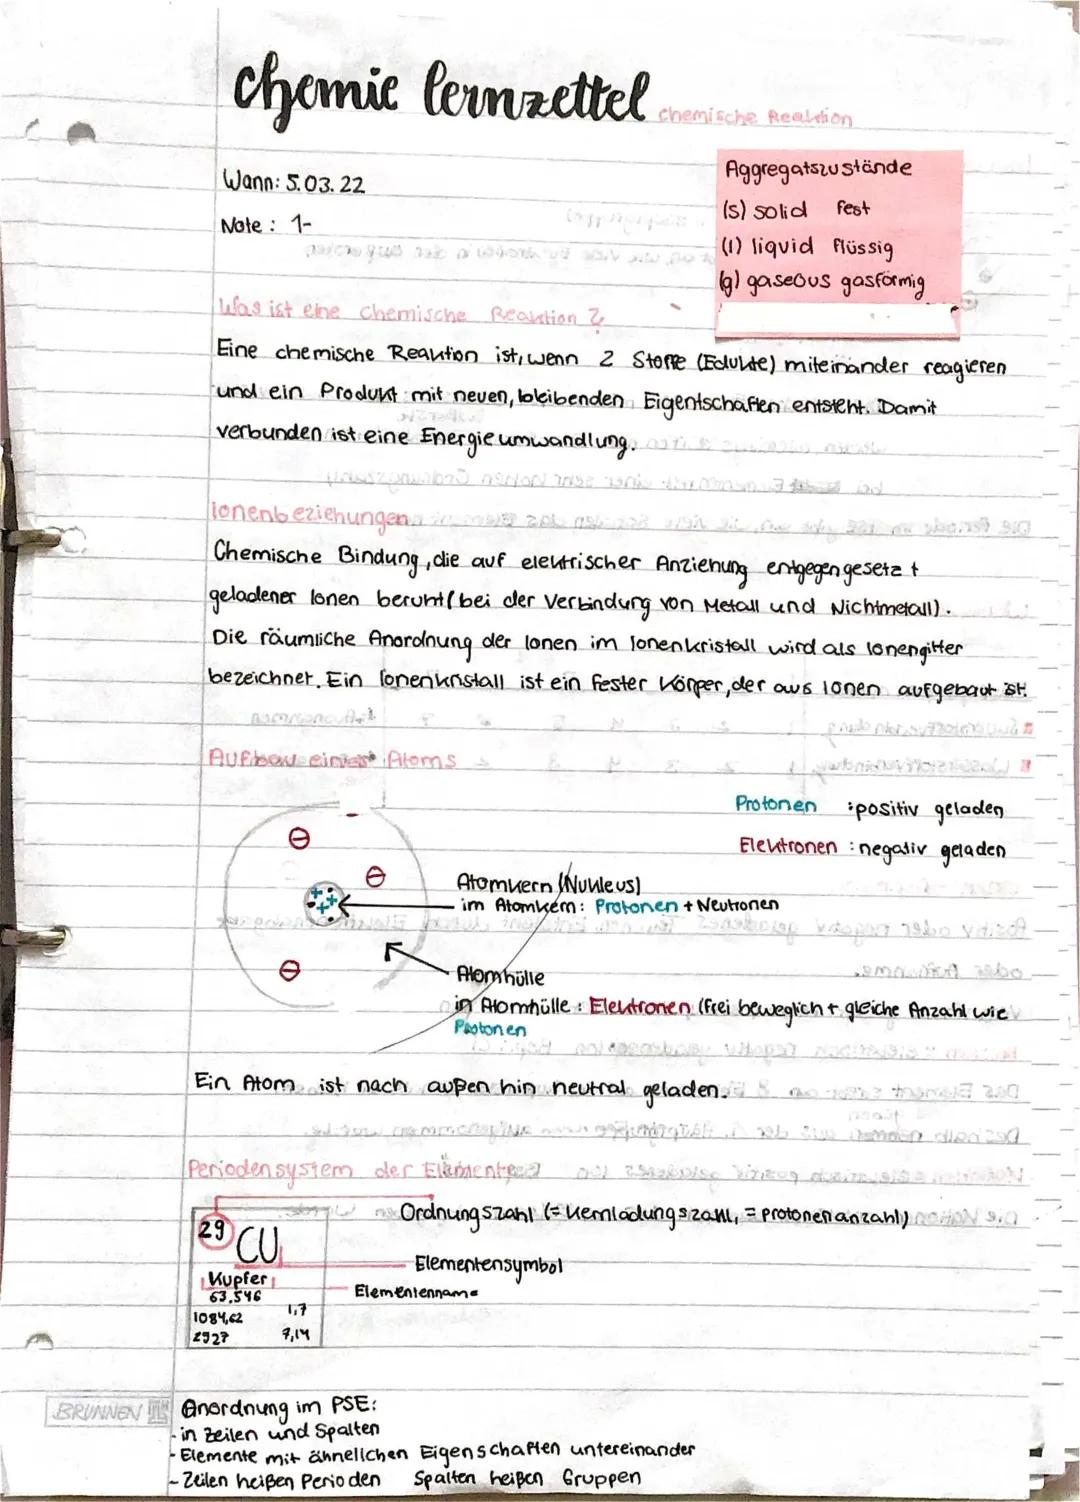 chemie lernzettel
chemische Reaktion
Wann: 5.03.22
Note : 1-
Aggregatszustände
(s) solid fest
(l) liquid flüssig
(g) gaseous gasförmig
Was ist eine chemische Reaktion ?
Eine chemische Reaktion ist, wenn 2 Stoffe (Edukte) miteinander reagieren
und ein Produkt mit neuen, bleibenden Eigentschaften entsteht. Damit
verbunden ist eine Energieumwandlung.
Ionenbeziehungen
Chemische Bindung, die auf elektrischer Anziehung entgegengesetzt
geladener Ionen beruht (bei der Verbindung von Metall und Nichtmetall).
Die räumliche Anordnung der Ionen im Ionenkristall wird als Ionengitter
bezeichnet. Ein Ionenkristall ist ein fester Körper, der aus Ionen aufgebaut ist.
Aufbau eines Atoms
Protonen : positiv geladen
Elektronen : negativ geladen
Atomkern (Nukleus)
im Atomkern: Protonen + Neutronen
Atomhülle
in Atomhülle : Elektronen (frei beweglich + gleiche Anzahl wie
Protonen
Ein Atom ist nach außen hin neutral geladen.
Periodensystem der Elemente
Ordnungszahl (= Kernladungszahl, = protonenanzahl)
29 CU
Elementensymbol
Kupfer
Elementenname
63,546
1084,62 1,7
2927 7,14
BRUNNEN
Anordnung im PSE:
- in Zeilen und Spalten
- Elemente mit ähnelichen Eigenschaften untereinander
- Zeilen heißen Perioden Spalten heißen Gruppen